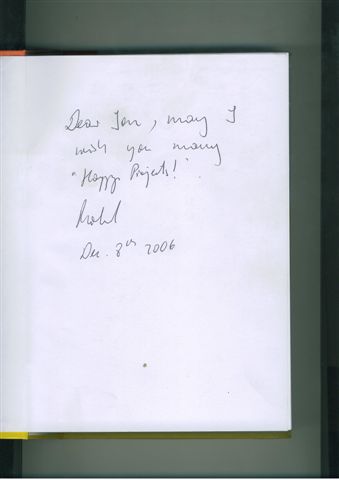 Dear Jon, may I
wish you many
"Happy Projects!".
Dec. 8th 2006